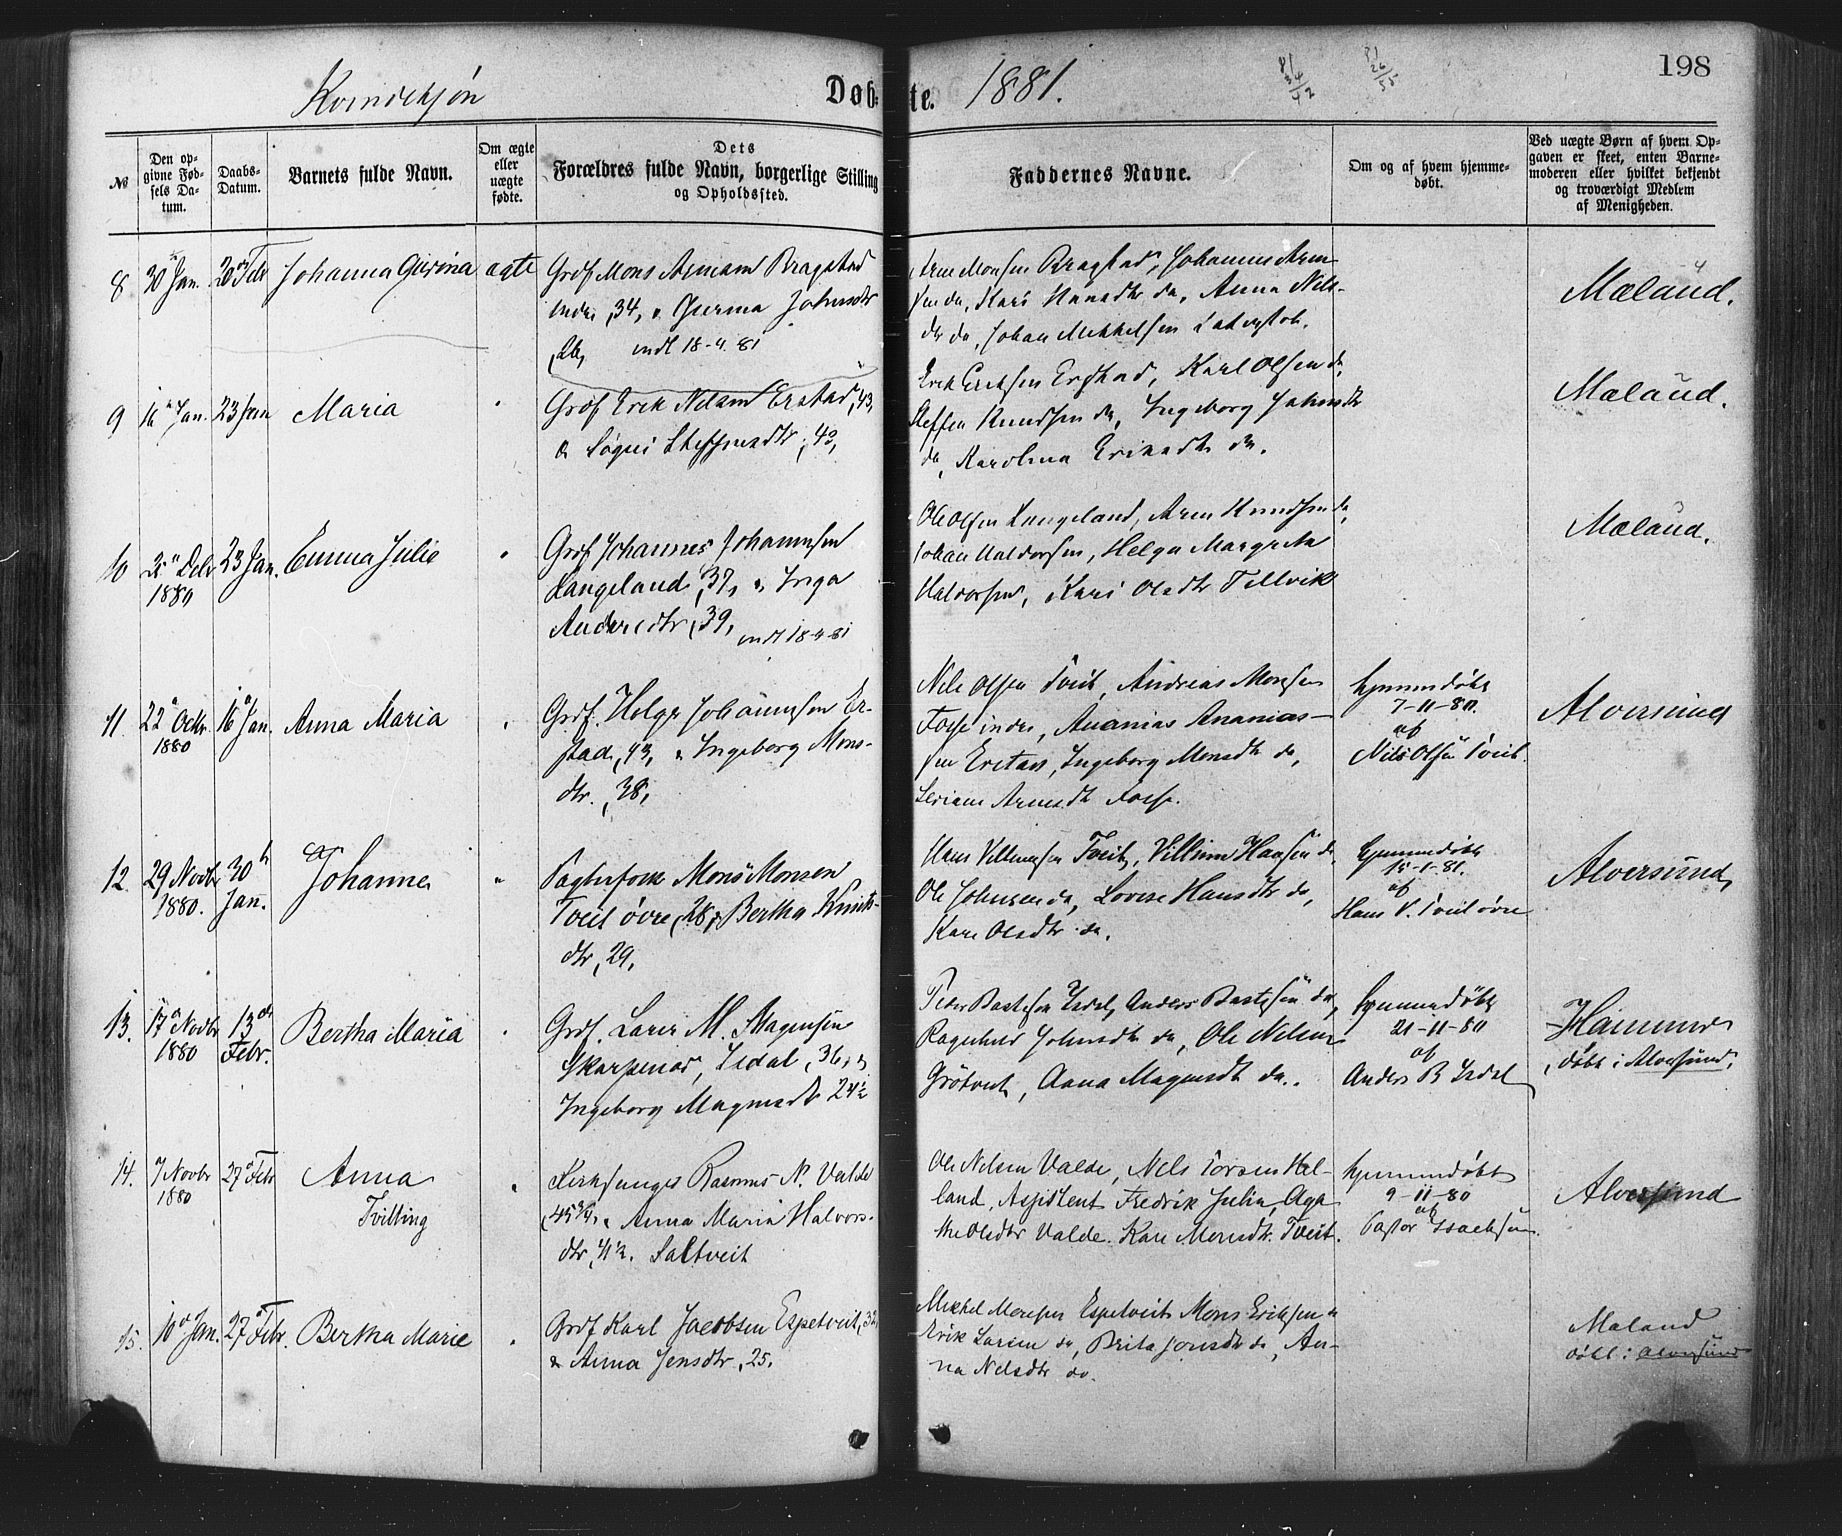 198
Kvindekjøn Døbte. 1881.
№
Den opgivne Fødsels Datum.
Daabs-Datum.
Barnets fulde Navn.
Om ægte eller uægte fødte.
Dets Forældres fulde Navn, borgerlige Stilling og Opholdssted.
Faddernes Navne.
Om og af hvem hjemmedøbt.
Ved uægte Børn af hvem Opgaven er skeet, enten Barnemoderen eller hvilket bekjendt og troværdigt Medlem af Menigheden.
8 30 Jan. 20 Febr Johanna Gurina ægte
Grdf Mons Bragstad
indre, 34, Johnsdtr
26, indt 18-4 81
Arne Monsen Bragstad, Johannes Arnesen do, Kari do, Anna Nilsdtr do, Johan Mikkelsen
Mæland.
9 Jan. 23 Jan Maria "
Grdf Erik Nilsen Erstad, 43,
& Steffensdtr, 43,
Erik Eriksen Erstad, Karl Olsen do,
Steffen Knudsen do, Ingeborg Johnsdtr
do, Karolina do.
Mæland.
10 Debr 1880 23 Jan. Emma Julie "
Grdf Johannes Johannesen
Langeland, 37, & Inga
Andersdtr, 39, indt 18-4-81
Ole Olsen Langeland, Arne Knudsen do,
Johan Haldorsen, Helga Margreta
Haldorsen, Kari Olsdtr Tellvik
Mæland.
11. 22 Octbr. 1880 16 Jan. Anna Maria "
Grdf. Helge Johannesen Erstad, 43, & Ingeborg Monsdtr., 38,
Nils Olsen Tveit, Andreas Monsen
Fosse indre, Ananias Ananiassen Erstad, Ingeborg Monsdtr do,
Arnesdtr Fosse.
hjemmedøbt
7-11-80.
af
Nils Olsen Tveit.
Alversund
12. 29 Novbr 1880. 30 Jan. Johanne "
Pagterfolk Mons Monsen
Tveit øvre, 28, & Bertha Knutsdtr, 29,
Hans Villumsen Tveit, Villum Hansen do,
Ole Johnsen do, Lovise Hansdtr do,
Kari Olsdtr do.
hjemmedøbt
15-1-81.
af
Hans V. Tveit øvre
Alversund
13. 17 Novbr 1880 13 Febr. Bertha Maria "
Grdf. Lars M. Magnesen
Isdal, 36, &
Ingeborg Magnesdtr 24½
Peder Bastesen Isdal, Anders Bastesen do,
Ragnhild Johnsdtr do, Ole Nilsen
Anna Magnesdtr do.
hjemmedøbt
21-11-80
af
Anders B Isdal
Hammer
døbt i Alversund.
14. 7 Novbr 1880 27 Febr Anna Tvilling "
Kirkesanger Rasmus N. Valde
45¾, & Anna Maria Halvorsdtr, 41½. Saltveit
Ole Nilsen Valde, Nils Helland, Assistent Fredrik Julin, Agathe Olsdtr Valde. Kari Monsdtr. Tveit.
hjemmedøbt
9-11-80
af
Pastor Isachsen.
Alversund
15. 10 Jan. 27 Febr. Bertha Marie "
Grdf Karl Jacobsen Espetveit, 32
& Anna Jensdtr, 25.
Mikkel Monsen Espetveit Mons Eriksen
Erik Larsen do, Brita Jonsdtr do, Anna Nilsdtr do.
Mæland
døbt i Alversund